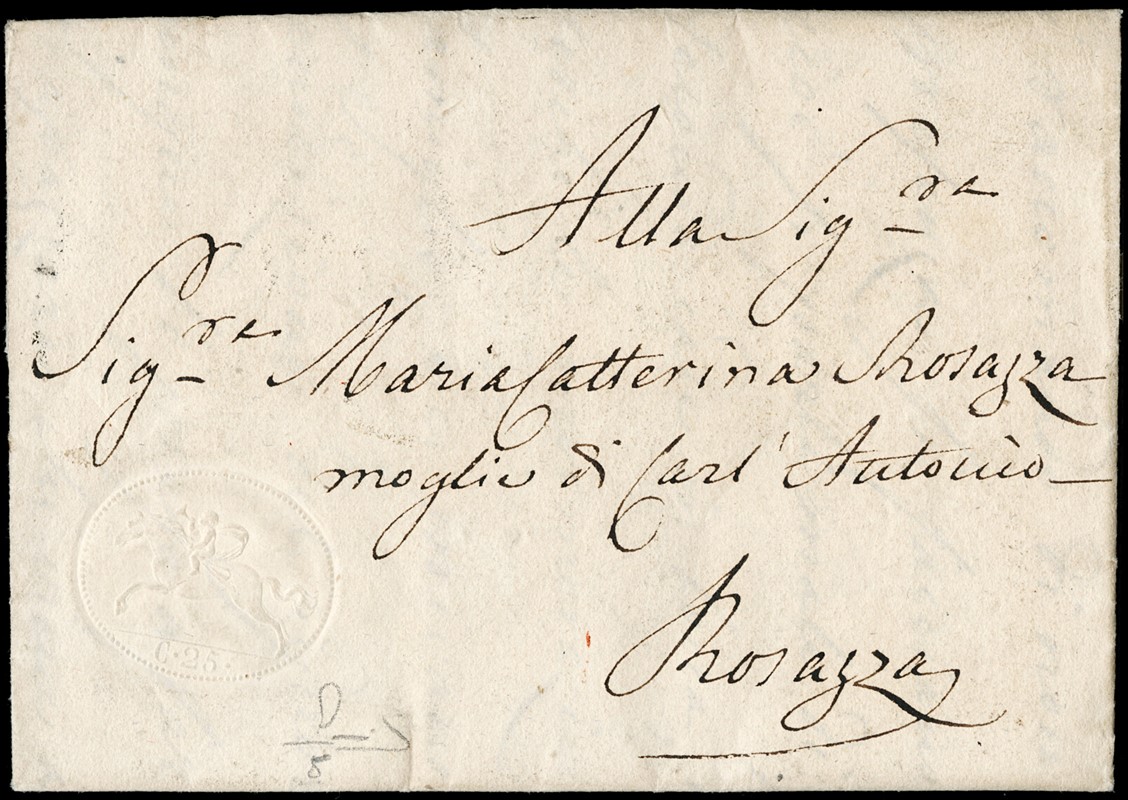 Alla Sig.ra
Sig.ra Maria Catterina Rosazza
moglie di Carl' Antonio
Rosazza
C. 25.